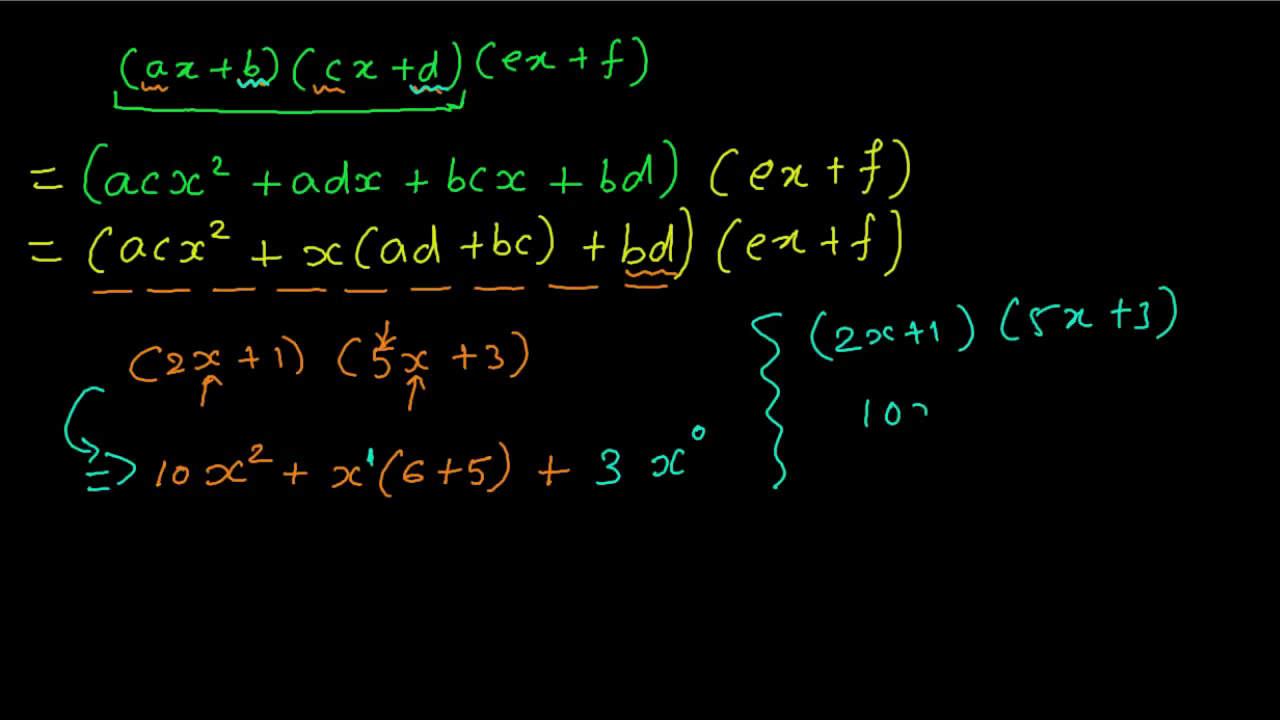 (ax+b)(cx+d)(ex+f)
= (acx² + adx + bcx + bd) (ex+f)
= (acx² + x(ad+bc) + bd) (ex+f)
(2x+1) (5x+3)
⇒ 10x² + x¹(6+5) + 3x⁰
(2x+1) (5x+3)
10